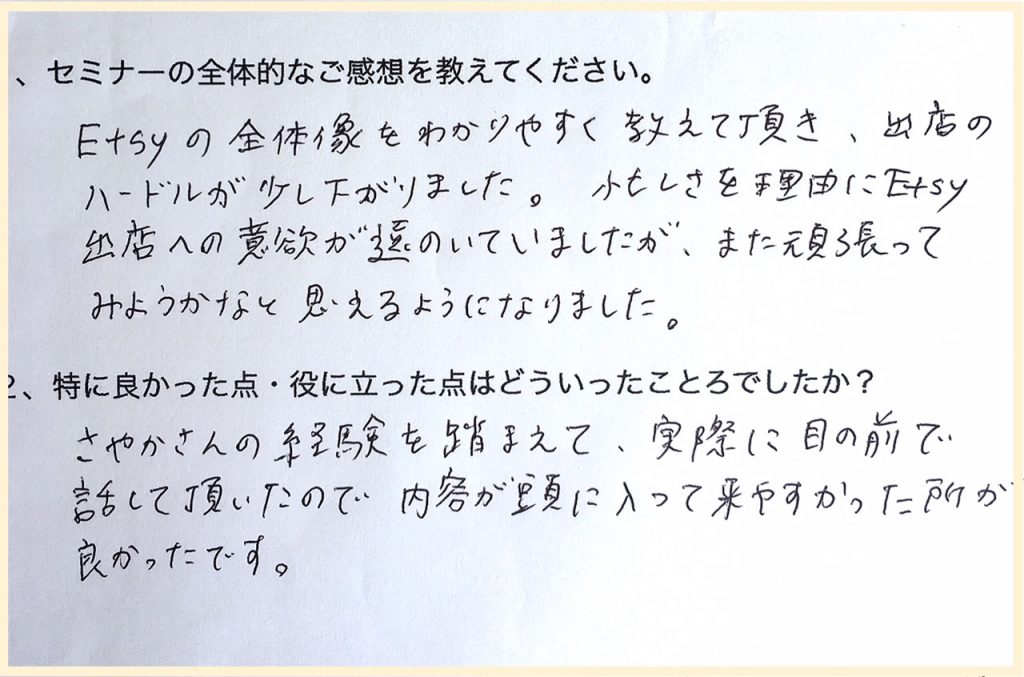 、セミナーの全体的なご感想を教えてください。
Etsyの全体像をわかりやすく教えて頂き、出店の
ハードルが少し下がりました。忙しさを理由にEtsy
出店への意欲が遠のいていましたが、また頑張って
みようかなと思えるようになりました。
2、特に良かった点・役に立った点はどういったことろでしたか？
さやかさんの経験を踏まえて、実際に目の前で
話して頂いたので内容が頭に入って来やすかった所が
良かったです。